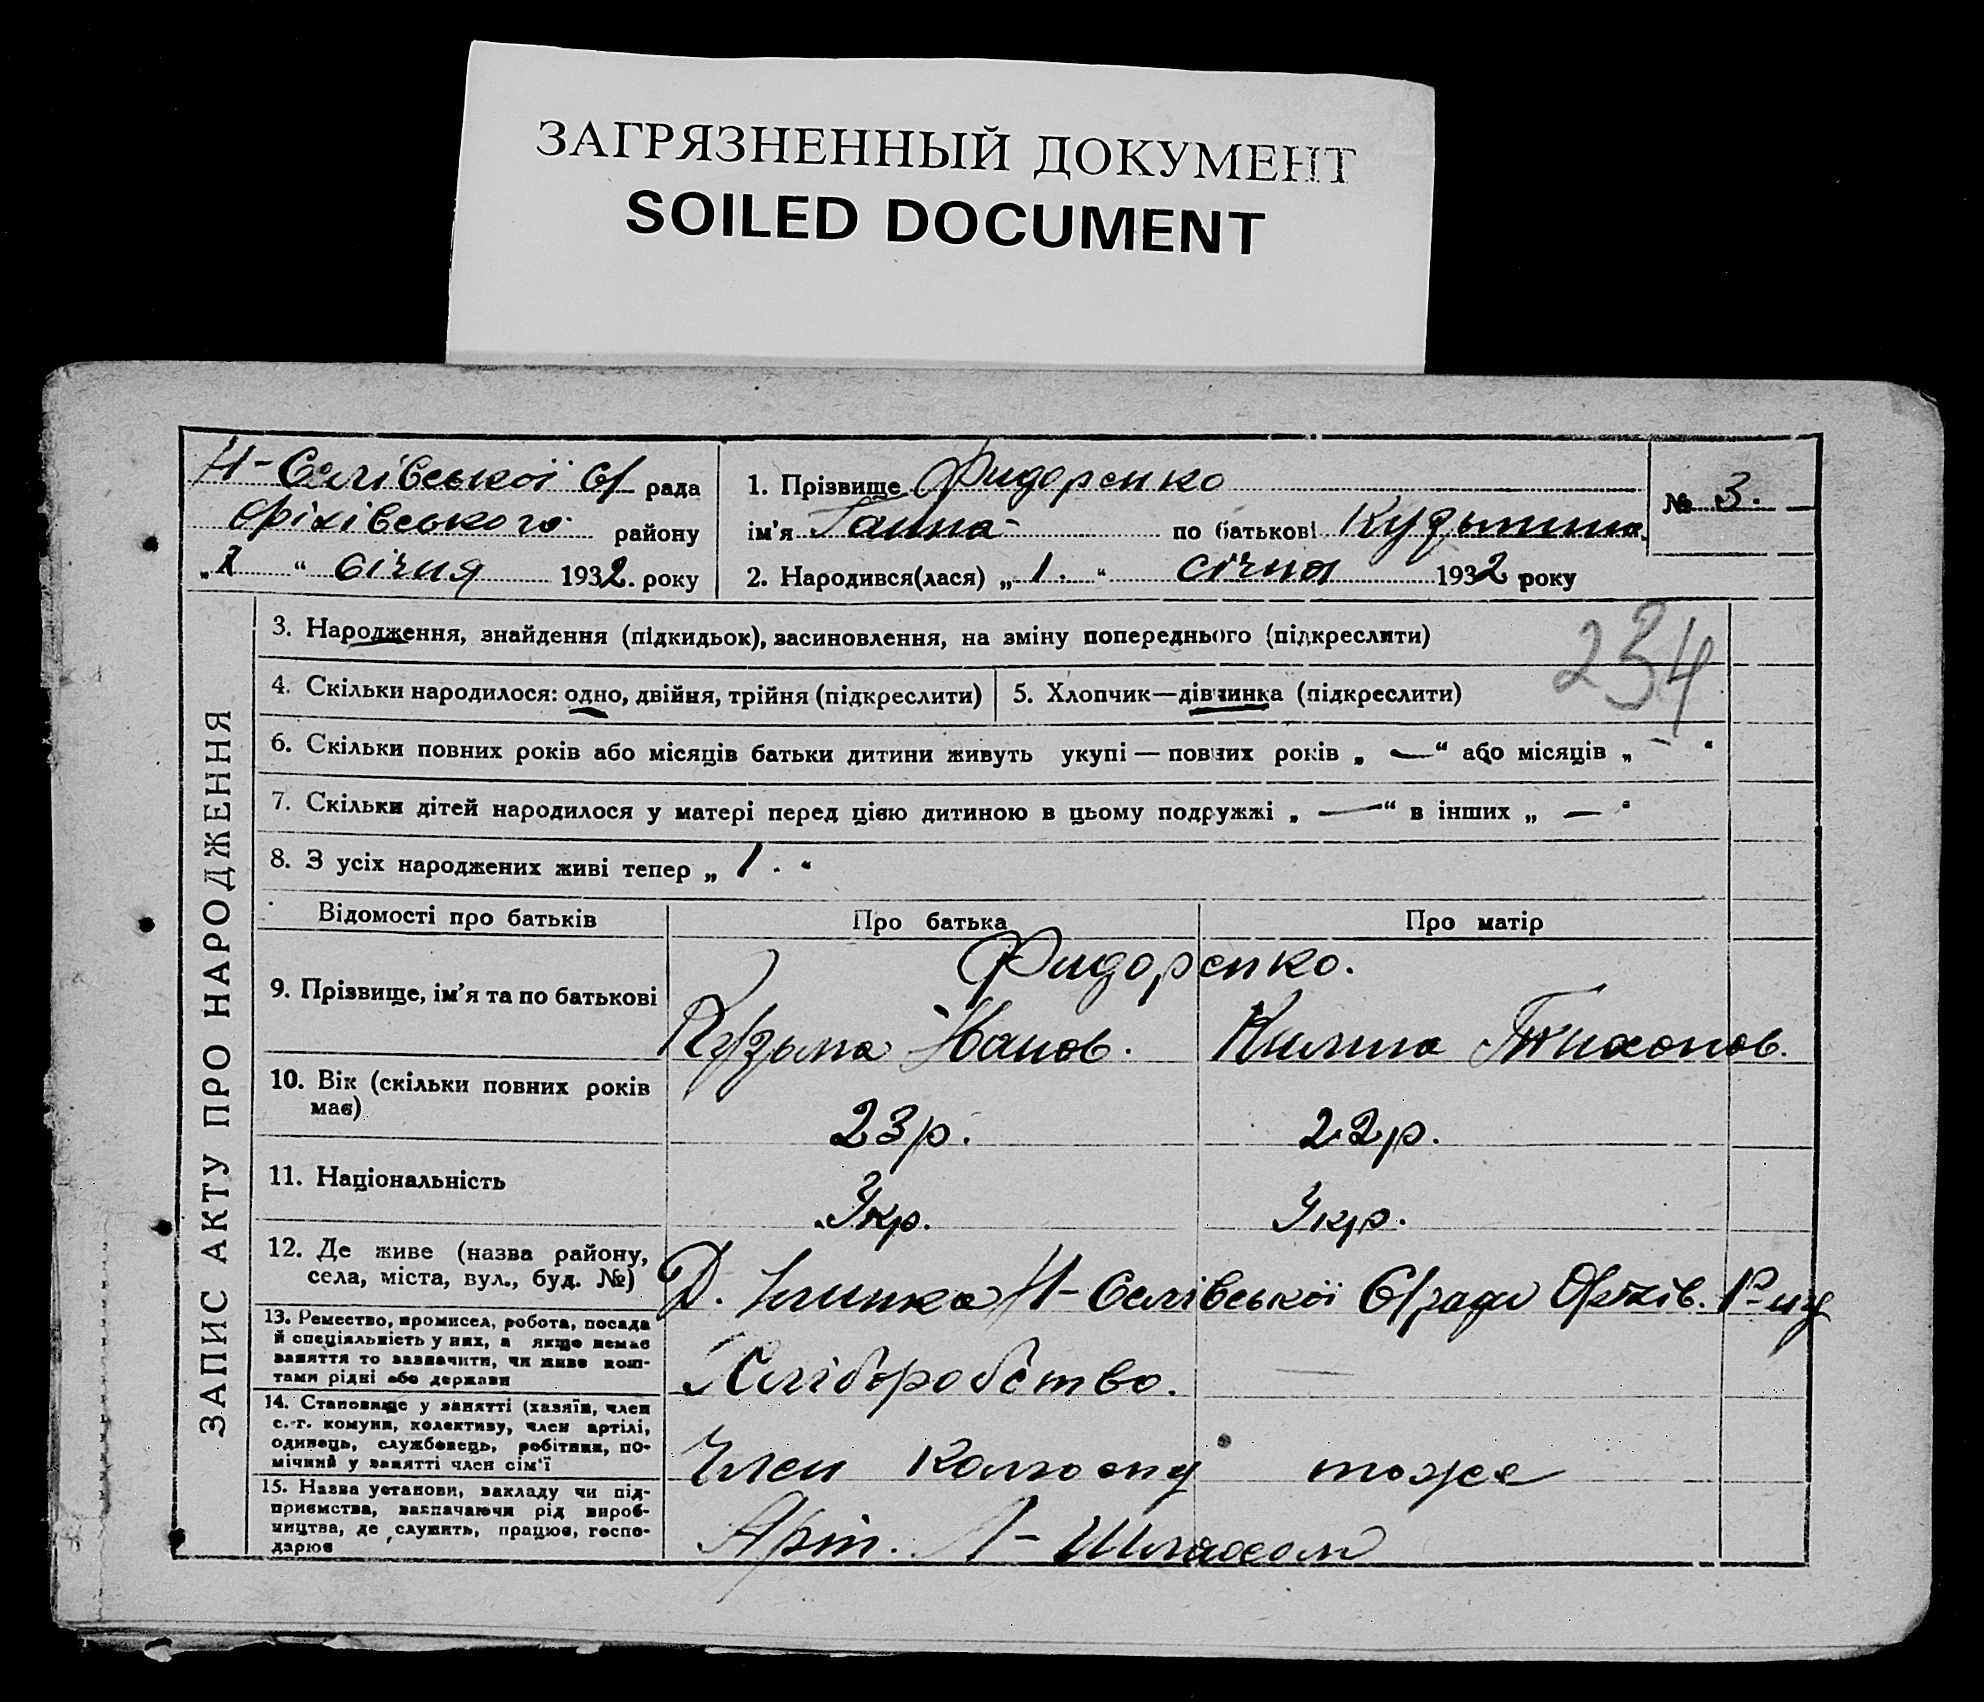 ЗАГРЯЗНЕННЫЙ ДОКУМЕНТ
SOILED DOCUMENT
Н-Селівської С/ рада
Оріхівського району
„2“ січня 1932. року
1. Прізвище Фидоренко
ім'я Ганна по батькові Кузьминична
2. Народився(лася) „1.“ січня 1932 року
№ 3.
ЗАПИС АКТУ ПРО НАРОДЖЕННЯ
3. Народження, знайдення (підкидьок), засиновлення, на зміну попереднього (підкреслити)
234
4. Скільки народилося: одно, двійня, трійня (підкреслити)
5. Хлопчик—дівчинка (підкреслити)
6. Скільки повних років або місяців батьки дитини живуть укупі — повних років „ — “ або місяців „ - “
7. Скільки дітей народилося у матері перед цією дитиною в цьому подружжі „ — “ в інших „ — “
8. З усіх народжених живі тепер „ 1. “
Відомості про батьків
Про батька
Про матір
9. Прізвище, ім'я та по батькові
Фидоренко.
Кузьма Іванов.
Килина Тихонов.
10. Вік (скільки повних років
має)
23 р.
22 р.
11. Національність
Укр.
Укр.
12. Де живе (назва району,
села, міста, вул., буд. №)
Д. Н-Селівської С/ради Оріхів. Р-ну
13. Ремество, промисел, робота, посада
й спеціяльність у них, а якщо немає
заняття то зазначити, чи живе кош-
тами рідні або держави
Хліборобство.
—
14. Становище у занятті (хазяїн, член
с.-г. комуни, колективу, член артілі,
одинець, службовець, робітник, по-
мічний у занятті член сім'ї
Член колгоспу
тоже
15. Назва установи, закладу чи під-
приємства, зазначаючи рід вироб-
ництва, де служить, працює, госпо-
дарює
Арт. Шляхом